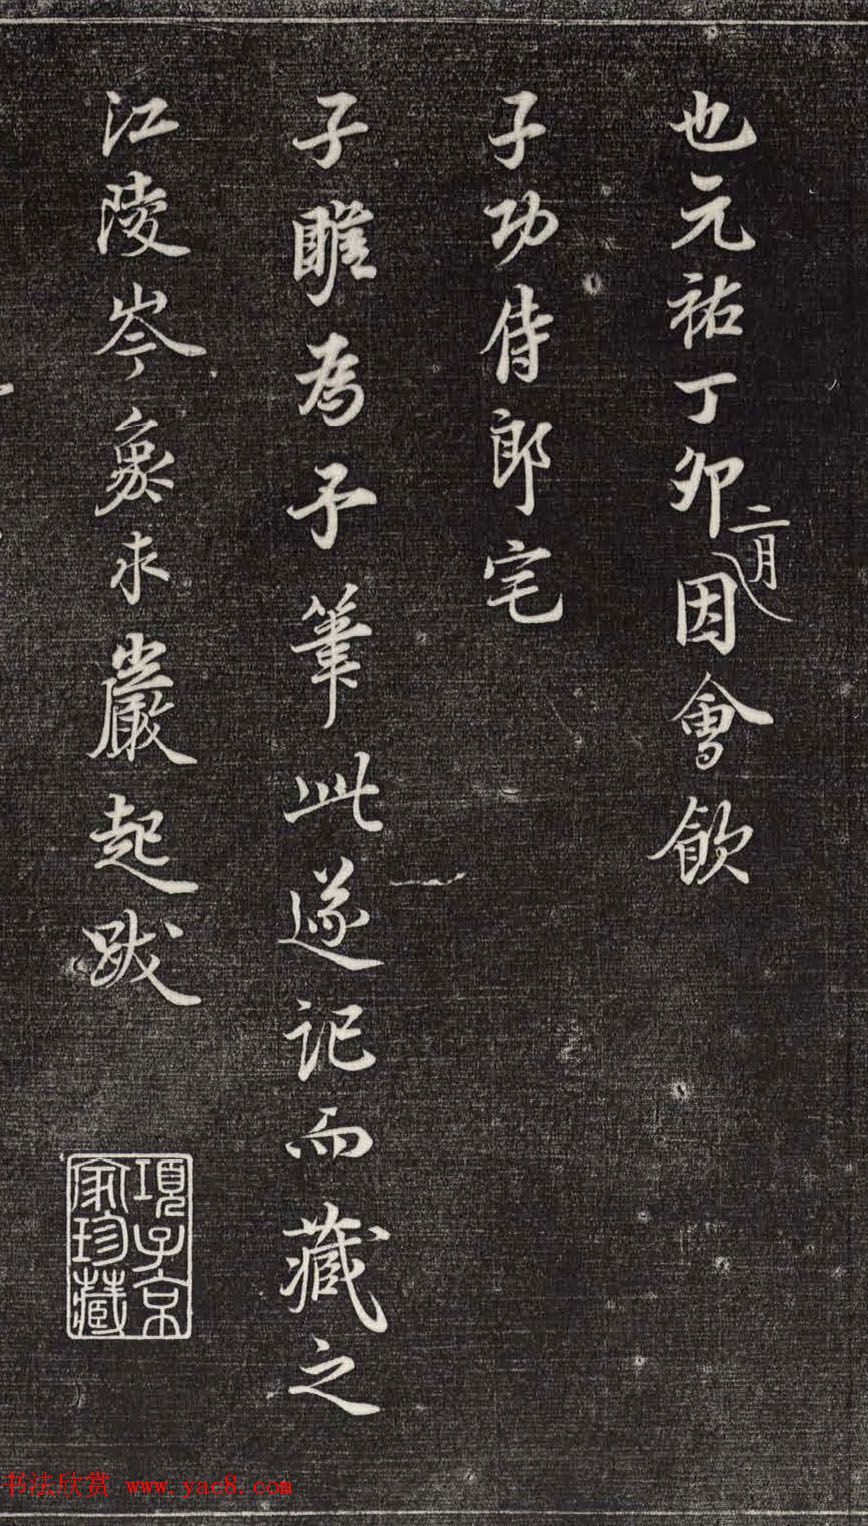 也元祐丁卯二月因會飲
子功侍郎宅
子雎為予筆此遂記而藏之
江陵岑象求嚴起跋
項子京家珍藏
书法欣赏 www.yac8.com